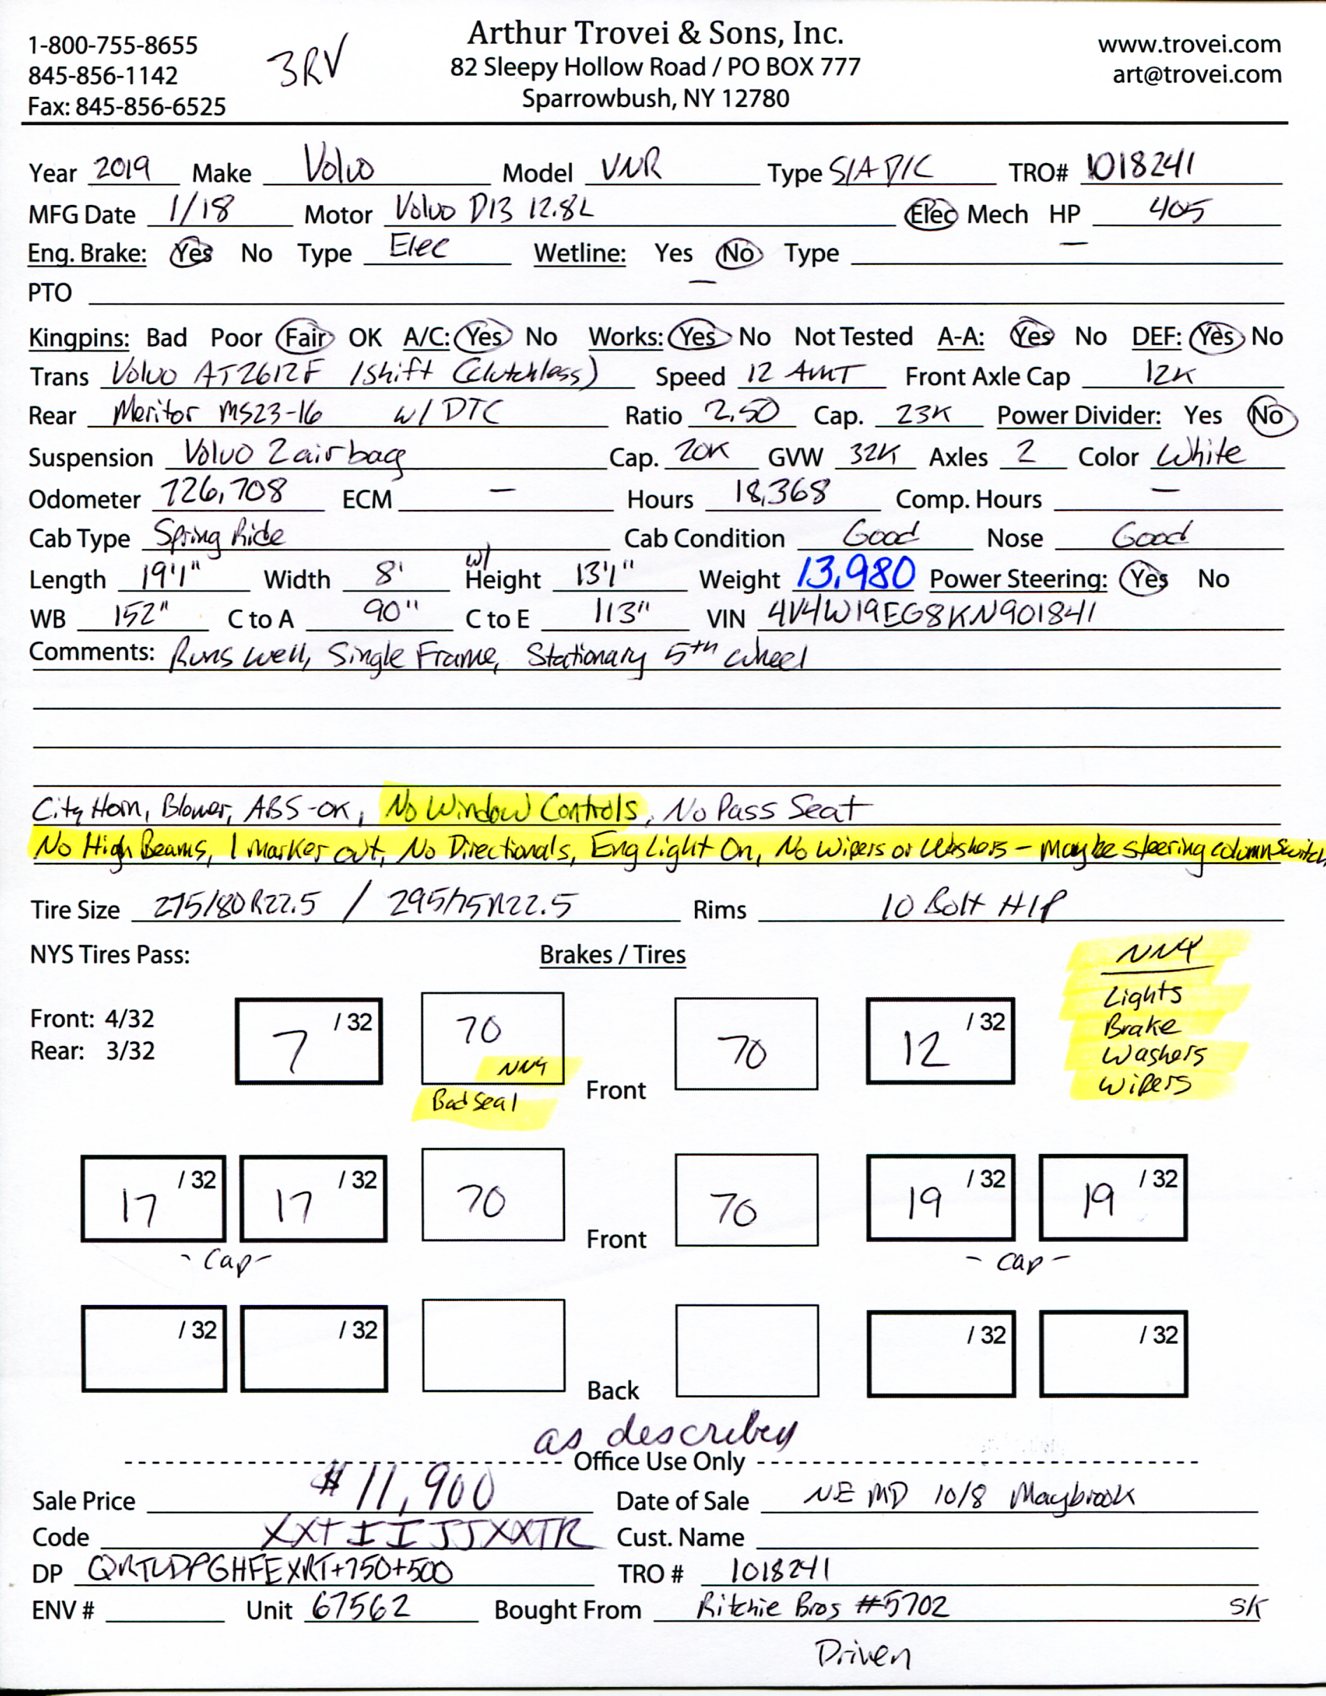 1-800-755-8655
845-856-1142
Fax: 845-856-6525
3RV
Arthur Trovei & Sons, Inc.
82 Sleepy Hollow Road / PO BOX 777
Sparrowbush, NY 12780
www.trovei.com
art@trovei.com
Year 2019 Make Volvo Model VNR Type S/A D/C TRO# 1018241
MFG Date 1/18 Motor Volvo D13 12.8L Elec Mech HP 405
Eng. Brake: Yes No Type Elec Wetline: Yes No Type —
PTO —
Kingpins: Bad Poor Fair OK A/C: Yes No Works: Yes No Not Tested A-A: Yes No DEF: Yes No
Trans Volvo AT2612F IShift (Clutchless) Speed 12 AMT Front Axle Cap 12K
Rear Meritor MS23-16 w/ DTC Ratio 2.50 Cap. 23K Power Divider: Yes No
Suspension Volvo 2 airbag Cap. 20K GVW 32K Axles 2 Color White
Odometer 726,708 ECM — Hours 18,368 Comp. Hours —
Cab Type Spring Ride Cab Condition Good Nose Good
Length 19'1" Width 8' w/ Height 13'1" Weight 13,980 Power Steering: Yes No
WB 152" C to A 90" C to E 113" VIN 4V4W19EG8KN901841
Comments: Runs well, Single Frame, Stationary 5th wheel
City Horn, Blower, ABS-OK, No Window Controls, No Pass Seat
No High Beams, 1 marker out, No Directionals, Eng Light On, No Wipers or Washers - Maybe steering column switch
Tire Size 275/80R22.5 / 295/75R22.5 Rims 10 Bolt H/P
NYS Tires Pass: Brakes / Tires
Front: 4/32
Rear: 3/32
7 /32 70 NNY Bad Seal Front 70 12 /32
NNY
Lights
Brake
Washers
Wipers
17 /32 17 /32 70 Front 70 19 /32 19 /32
- Cap - - Cap -
/32 /32 Back /32 /32
as described
Office Use Only
Sale Price $11,900 Date of Sale NE MD 10/8 Maybrook
Code XXTIIJJXXTR Cust. Name
DP QRTUDPGHFEXRT+750+500 TRO # 1018241
ENV # Unit 67562 Bought From Ritchie Bros #5702 SK
Driven